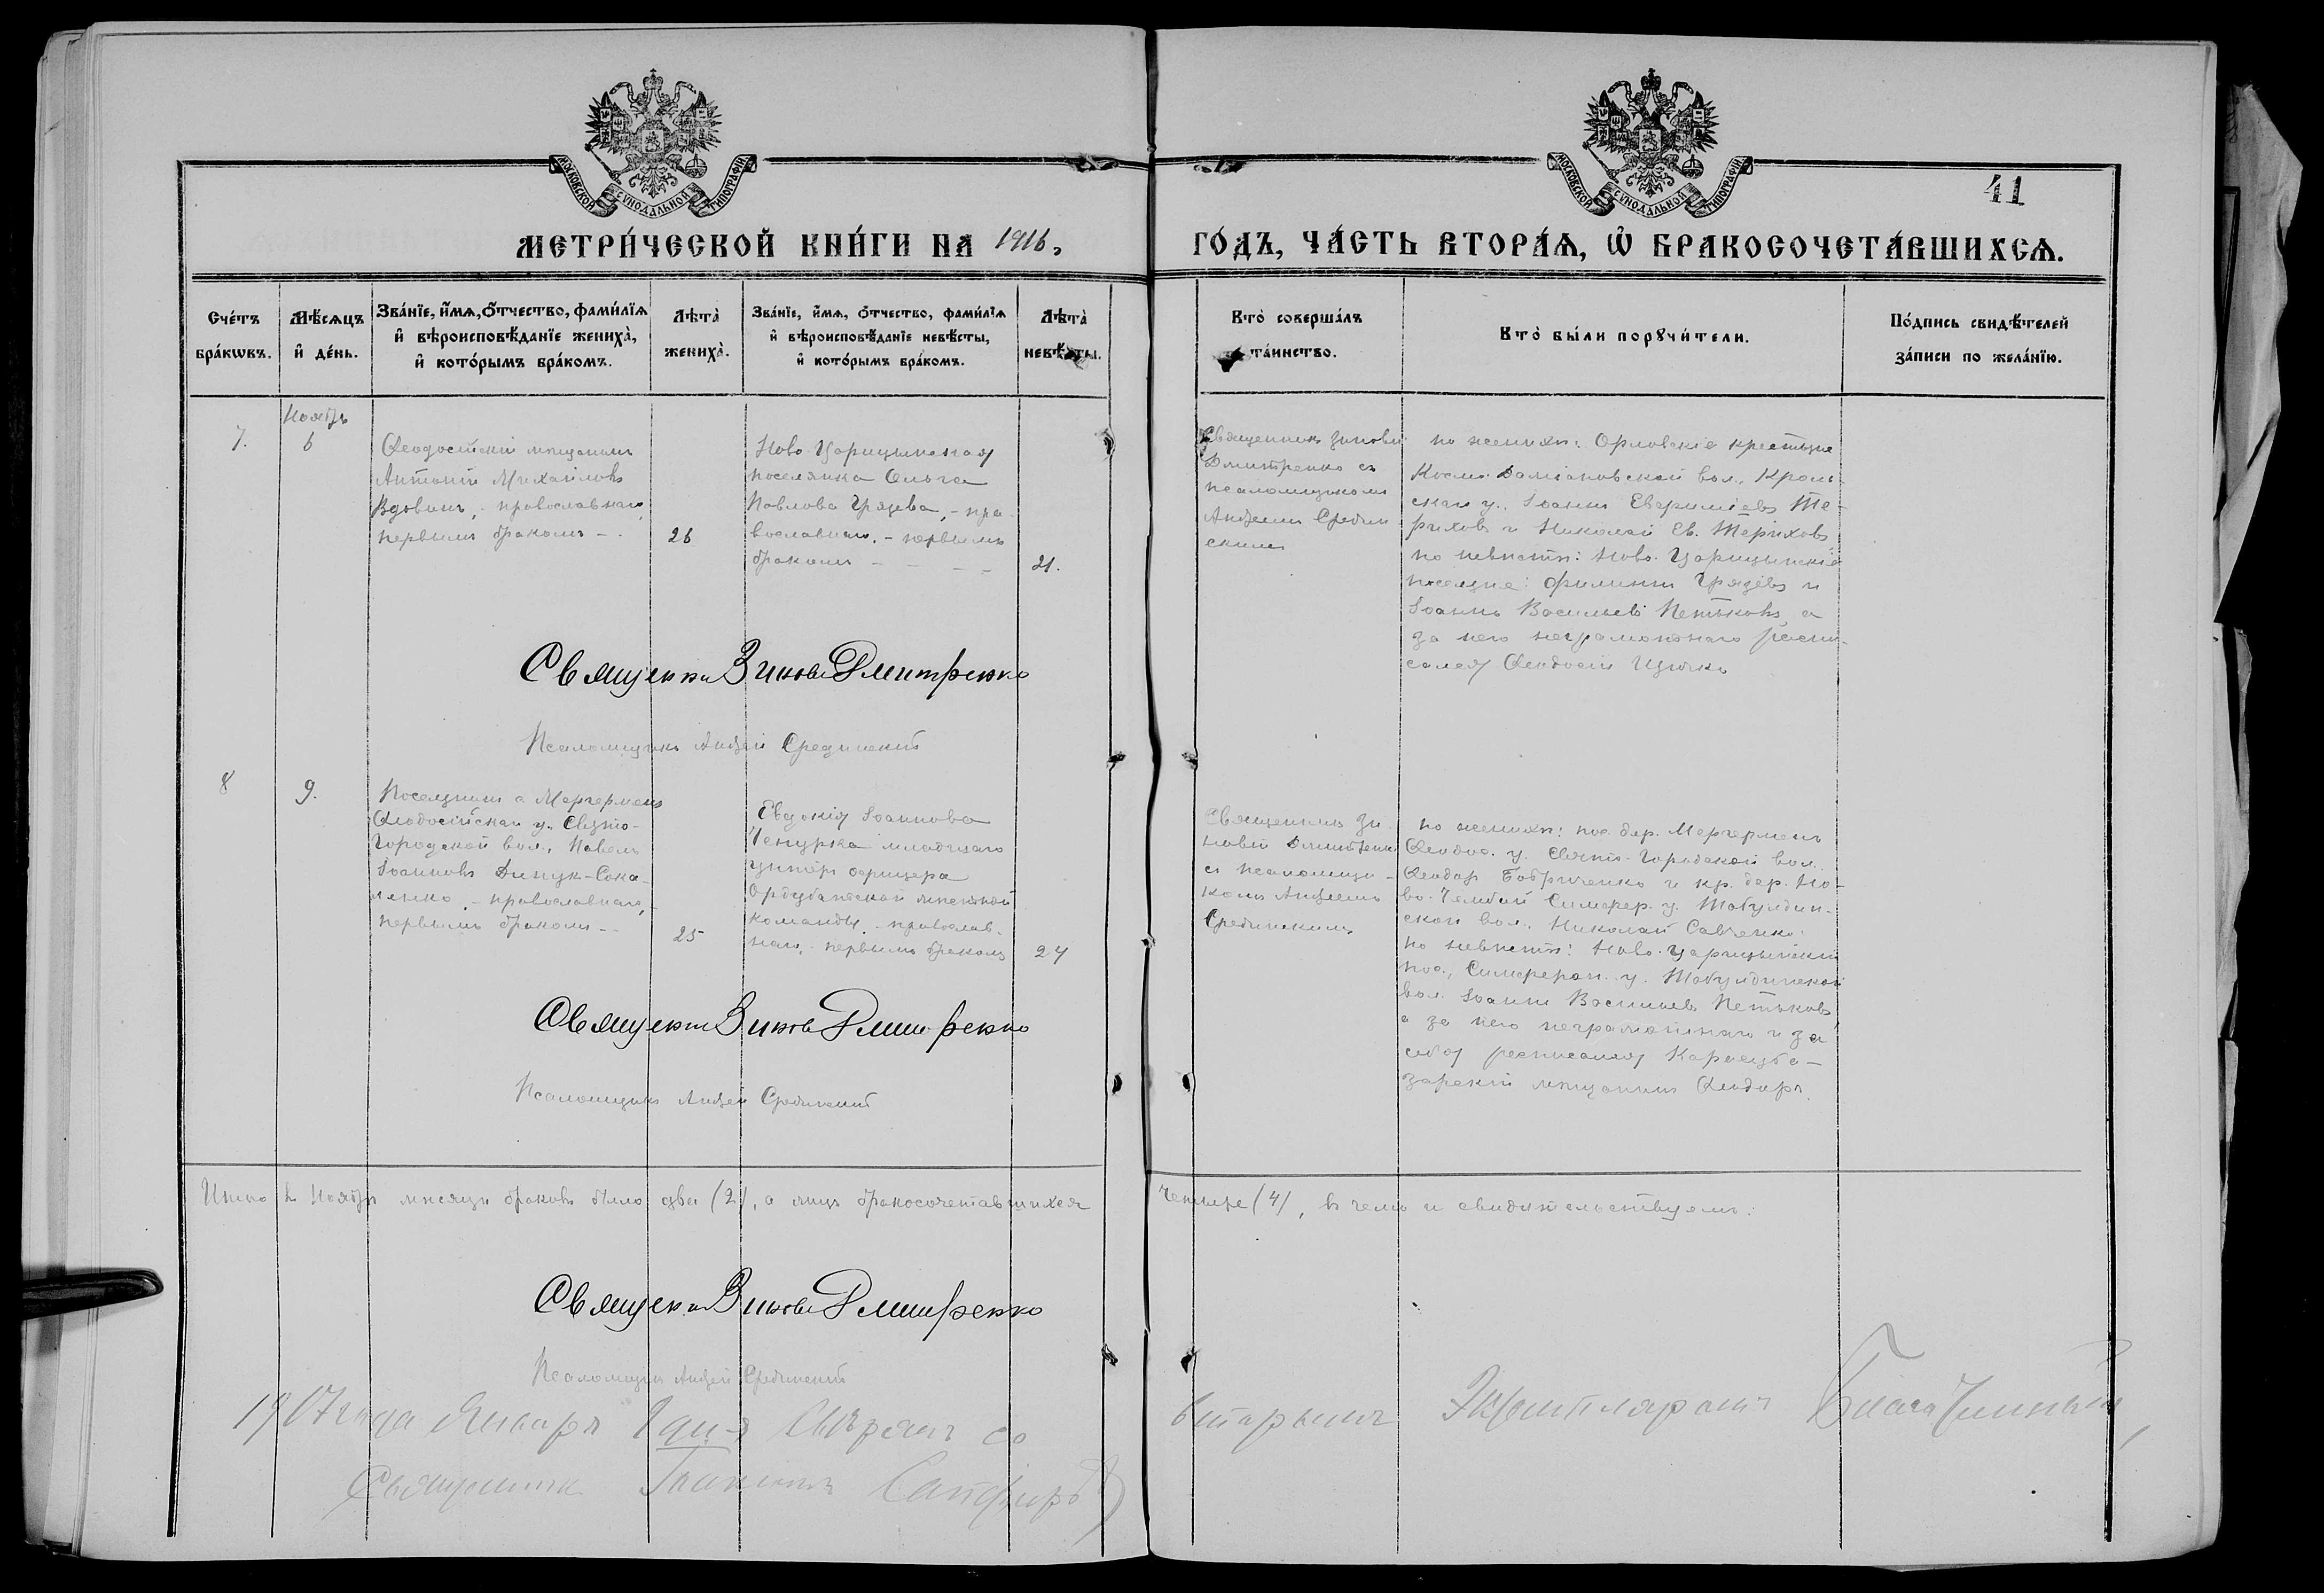 МОСКОВСКОЙ СѴНОДАЛЬНОЙ ТИПОГРАФІИ
МОСКОВСКОЙ СѴНОДАЛЬНОЙ ТИПОГРАФІИ
41
МЕТРИ́ЧЕСКОЙ КНИ́ГИ НА 1916.
ГО́ДЪ, ЧА́СТЬ ВТОРА́Ѧ, Ѡ҆ БРАКОСОЧЕТА́ВШИХСѦ.
Сче́тъ бра́кѡвъ.
Мѣ́сѧцъ и҆ де́нь.
Зва́нїе, и҆́мѧ, ѻ҆́тчество, фами́лїѧ и҆ вѣроисповѣ́данїе жениха̀, и҆ кото́рымъ бра́комъ.
Лѣта̀ жениха̀.
Зва́нїе, и҆́мѧ, ѻ҆́тчество, фами́лїѧ и҆ вѣроисповѣ́данїе невѣ́сты, и҆ кото́рымъ бра́комъ.
Лѣта̀ невѣ́сты.
Кто̀ соверша́лъ та́инство.
Кто̀ бы́ли порꙋчи́тели.
По́дпись свидѣ́телей за́писи по жела́нїю.
Ноябрь
7.
6
Ѳеодосійскій мѣщанинъ
Антоній Михайловъ
Вдовинъ, - православнаго,
первымъ бракомъ - .
26
Ново-Царицынская
поселянка Ольга
Павлова Грядева, - пра-
вославнаго, - первымъ
бракомъ - - - -
21.
Священникъ Зиновій
Дмитренко съ
псаломщикомъ
Андреемъ Средин
скимъ
по женихѣ: Орловскіе крестьяне
Космо-Даміановской вол., Кром-
скаго у., Іоаннъ Те-
риховъ и Николай Ев. Териховъ
по невѣстѣ: Ново-Царицынскіе
поселяне: Филиппъ Грядевъ и
Іоаннъ Васильевъ Петьковъ, а
за него неграмотнаго распи-
сался Ѳеодосій
Священник Зиновий Дмитренко
Псаломщикъ Андрей Срединскій
8
9.
Поселянинъ д. Мергерменъ
Ѳеодосійскаго у. Свято-
Городской вол., Павелъ
Іоанновъ Дипук-Сока-
ленко, - православнаго, -
первымъ бракомъ --
25
Евдокія Іоаннова
младшаго
унтеръ офицера
мѣстной
команды, - православ-
наго, первымъ бракомъ
24
Священникъ Зи-
новій Дмитренко
съ псаломщи-
комъ Андреемъ
Срединскимъ
по женихѣ: пос. дер. Мергерменъ
Ѳеодос. у. Свято-Городской вол.
Ѳеодоръ Бобриченко и кр. дер. Но-
во- Симфер. у. Табулдин-
ской вол. Николай Савченко:
по невѣстѣ: Ново-Царицынскій
пос., Симфероп. у. Табулдинской
вол. Іоаннъ Васильевъ Петьковъ,
а за него неграмотнаго и за
себя расписался Карасуба-
зарскій мѣщанинъ Ѳеодоръ
Священник Зиновий Дмитренко
Псаломщикъ Андрей Срединскій
Итого въ Ноябрѣ мѣсяцѣ браковъ было два (2), а лицъ бракосочетавшихся
четыре (4), въ чемъ и свидѣтельствуемъ:
Священник Зиновий Дмитренко
Псаломщикъ Андрей Срединскій
1917 года Января дня Свѣрялъ со
вторымъ Экземпляромъ Благочинный,
Священникъ